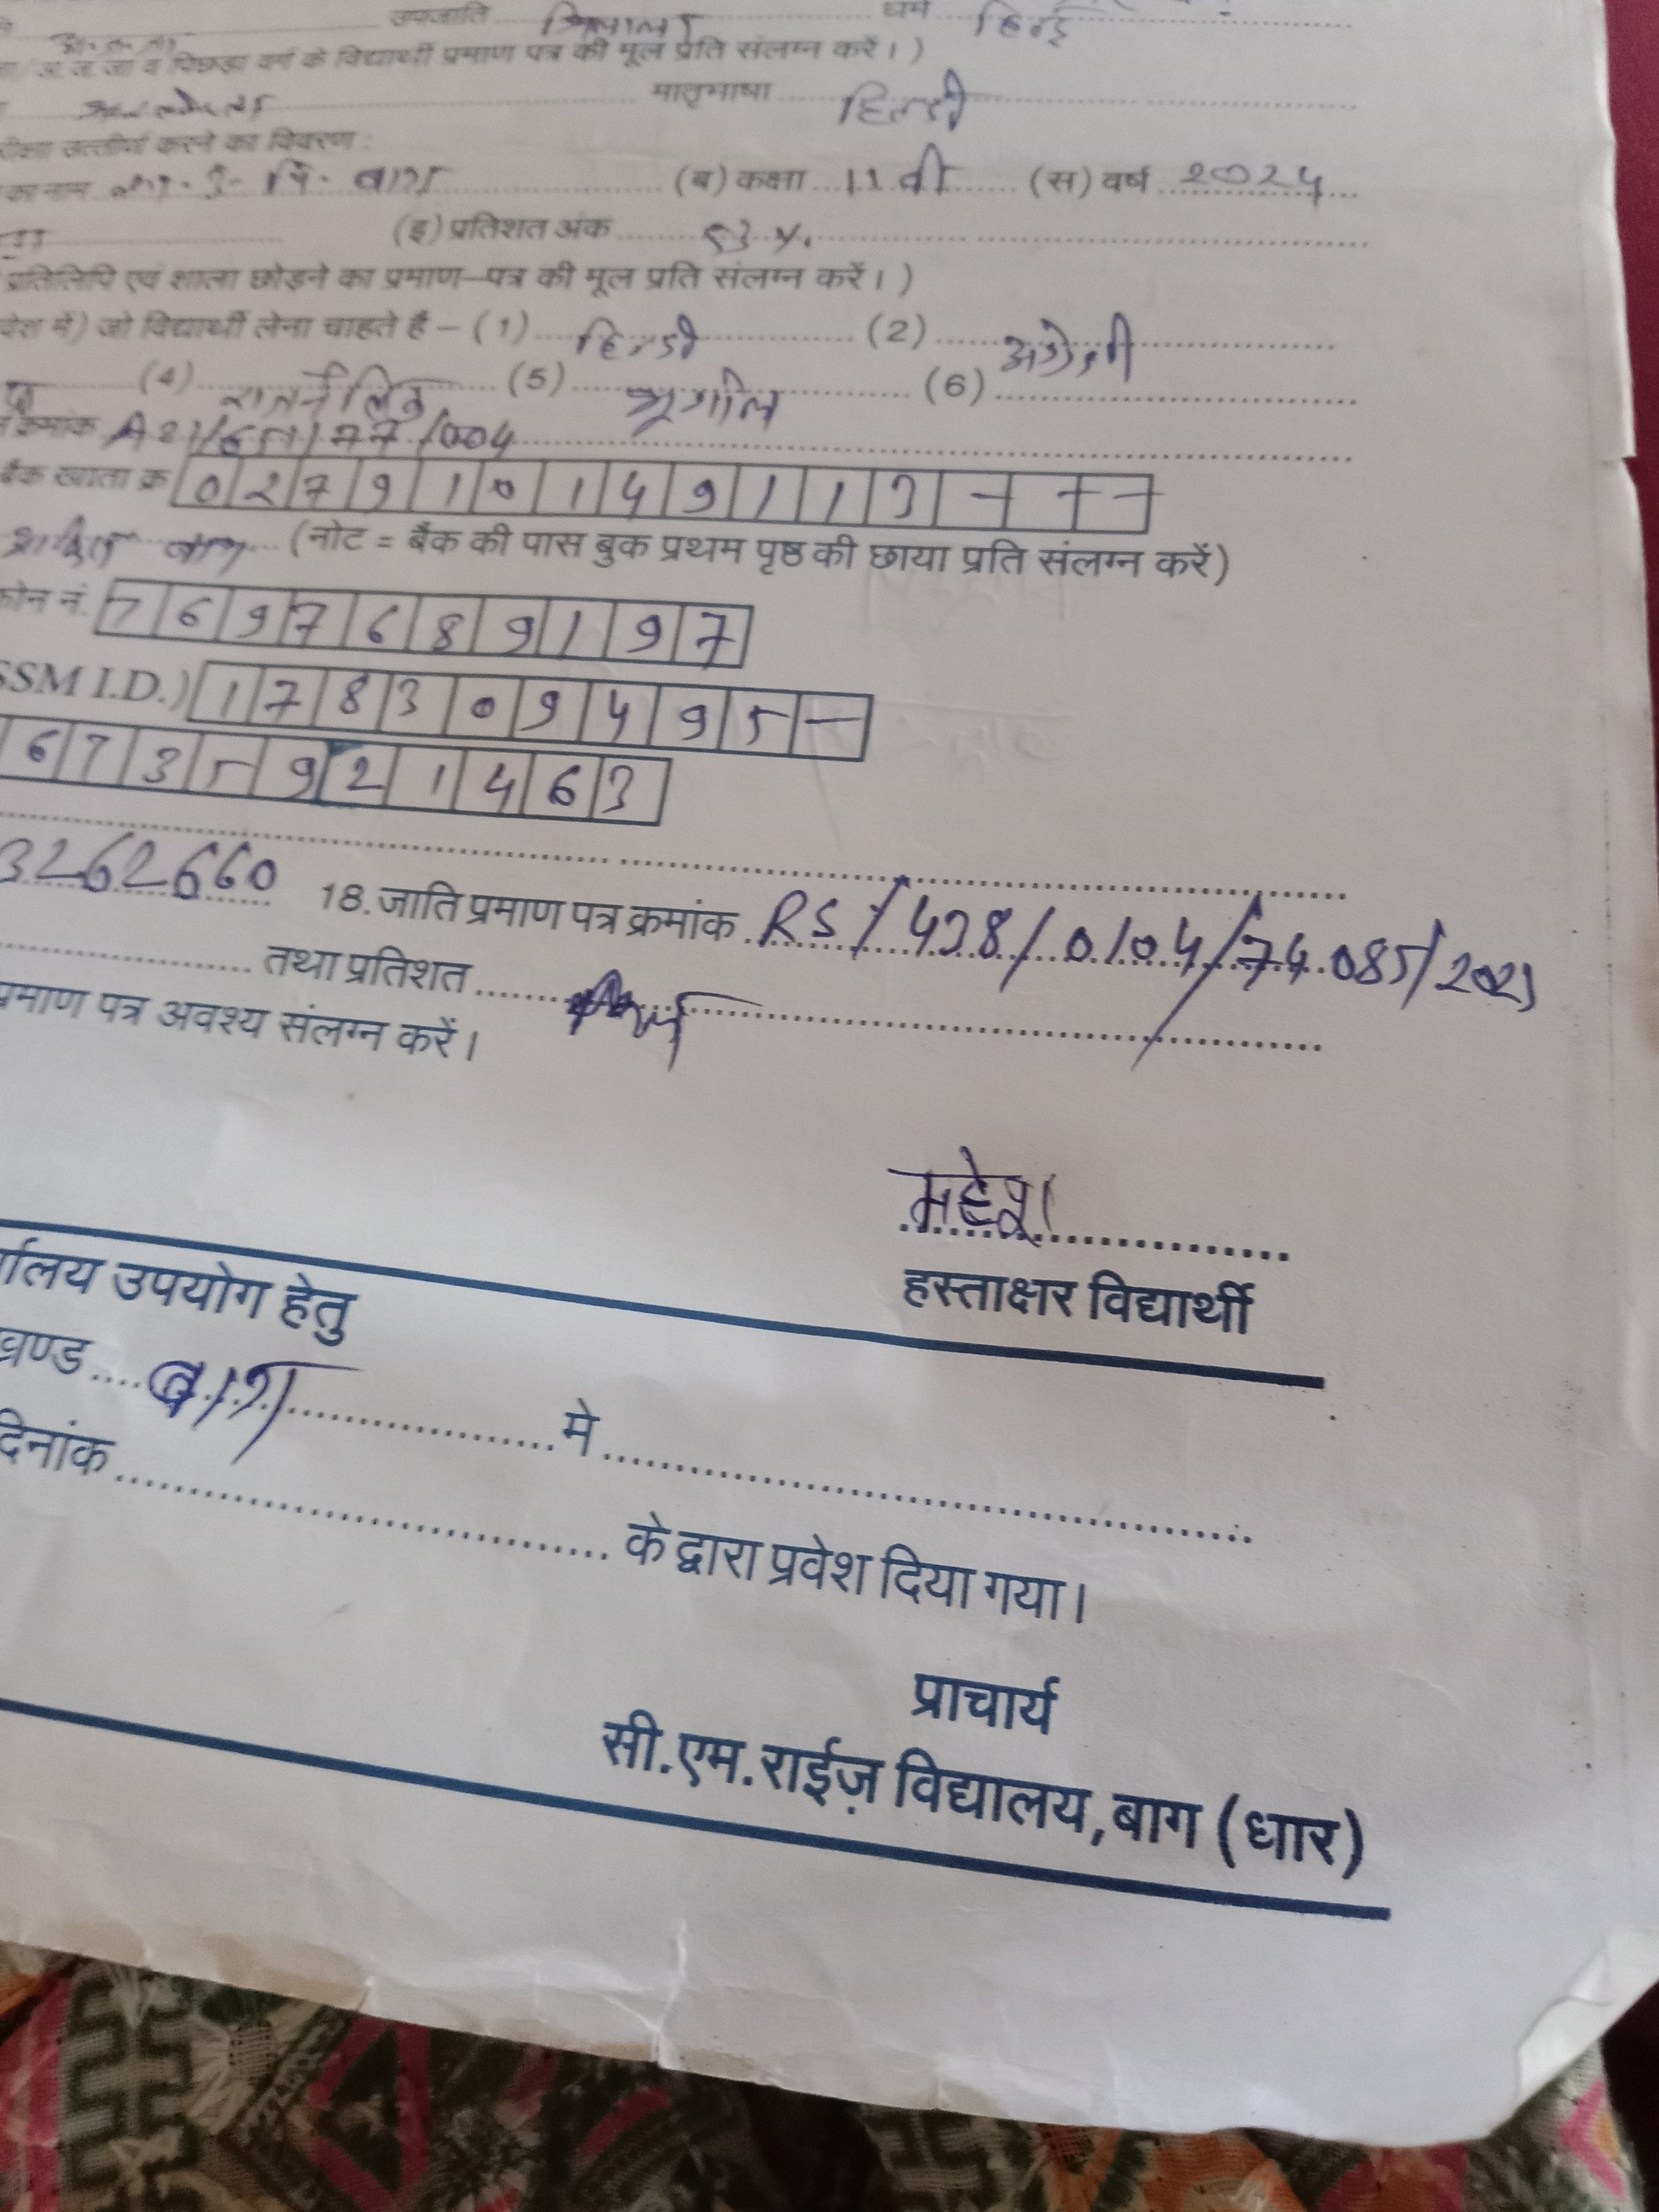 उपजाति धर्म हिन्दु
व पिछड़ा वर्ग के विद्यार्थी प्रमाण पत्र की मूल प्रति संलग्न करें। )
मातृभाषा हिन्दी
परीक्षा उत्तीर्ण करने का विवरण :
का नाम बाग (ब) कक्षा 11 वी (स) वर्ष 2024
(इ) प्रतिशत अंक
प्रतिलिपि एवं शाला छोड़ने का प्रमाण-पत्र की मूल प्रति संलग्न करें। )
में) जो विद्यार्थी लेना चाहते है - (1) हिन्दी (2) अंग्रेजी
(4) (5) भूगोल (6)
क्रमांक
बैंक खाता क्र 0 2 7 9 1 0 1 4 9 1 1 3 - - -
बाग (नोट = बैंक की पास बुक प्रथम पृष्ठ की छाया प्रति संलग्न करें)
फोन नं. 7 6 9 7 6 8 9 1 9 7
SSM I.D.) 1 7 8 3 0 9 4 9 5 -
6 7 3 5 9 2 1 4 6 3
3262660 18. जाति प्रमाण पत्र क्रमांक RS/428/0104/74085/2023
तथा प्रतिशत
प्रमाण पत्र अवश्य संलग्न करें।
महेश
हस्ताक्षर विद्यार्थी
र्यालय उपयोग हेतु
खण्ड बाग मे
दिनांक के द्वारा प्रवेश दिया गया।
प्राचार्य
सी.एम.राईज़ विद्यालय, बाग (धार)